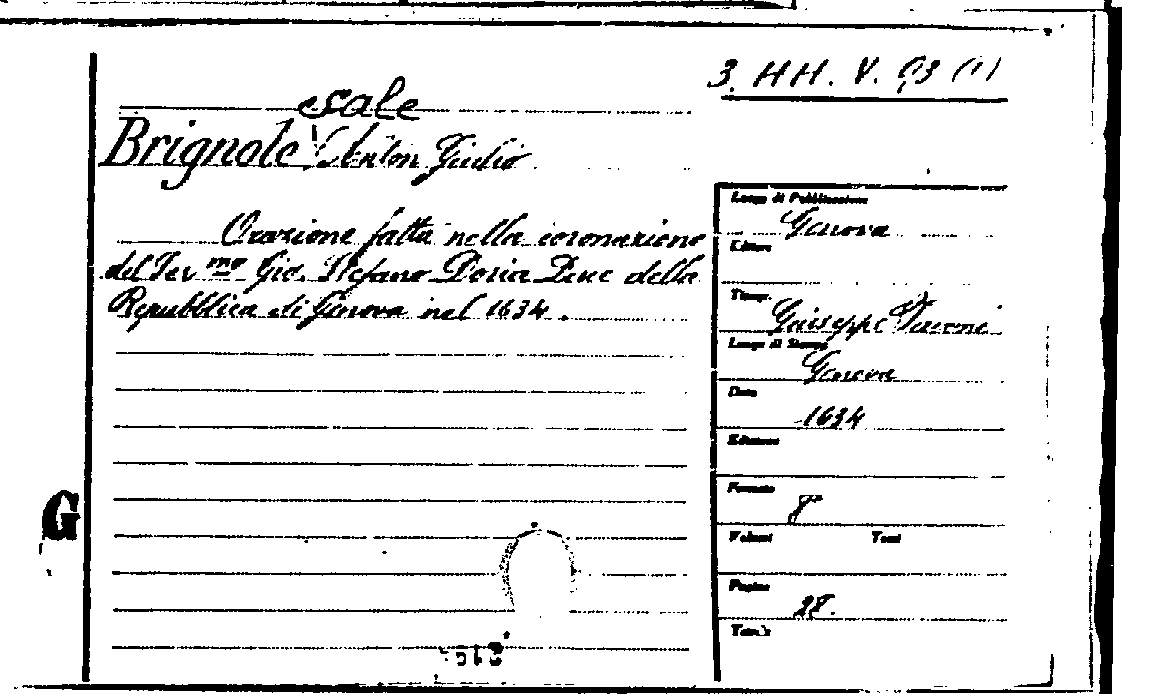 3. HH. V. 93 (1)
Sale
Brignole, Anton Giulio
Orazione fatta nella coronazione
del Ser.mo Gio. Stefano Doria Duce della
Repubblica di Genova nel 1634.
G
Luogo di Pubblicazione
Genova
Editore
Tipogr.
Giuseppe Pavoni
Luogo di Stampa
Genova
Data
1634
Edizione
Formato
8°
Volumi Tomi
Pagine
28.
Tav.e